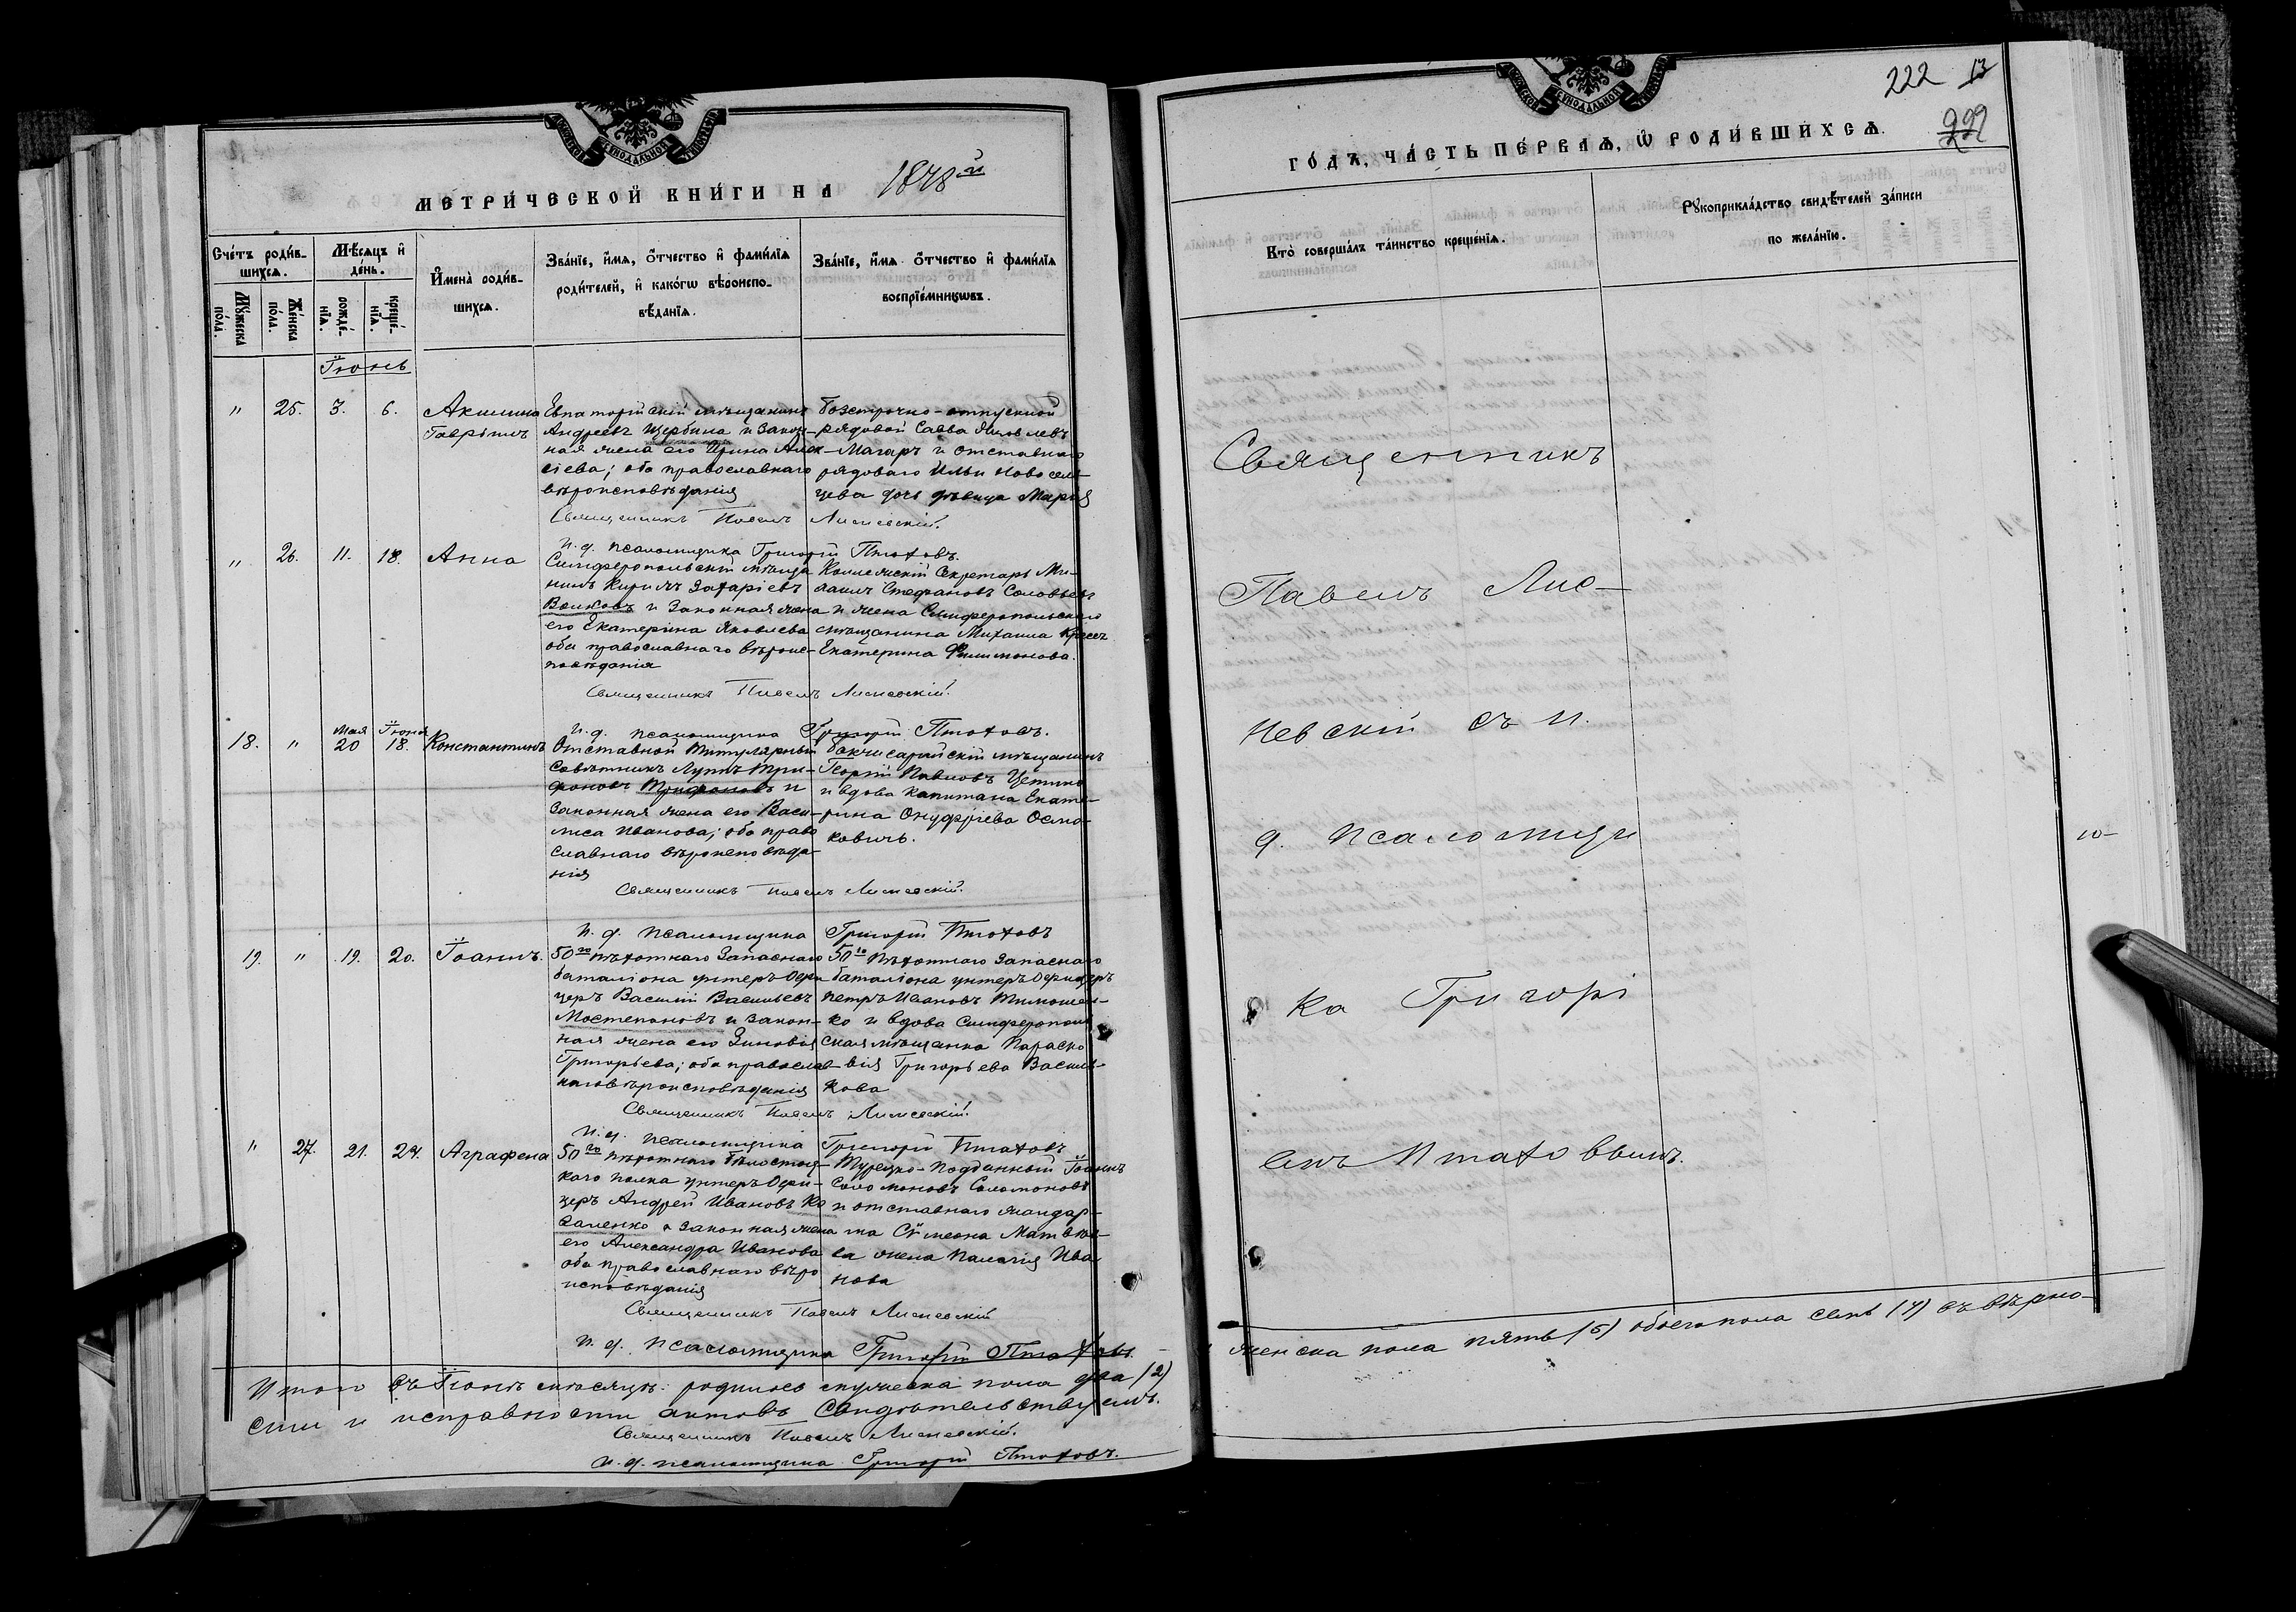 МЕТРИЧЕСКОЙ КНИГИ НА 1878й
Счетъ родив-
шихся.
Мѣсяцъ и
день.
Имена родив-
шихся.
Званіе, имя, отчество и фамилія
родителей, и какогω вѣроиспо-
вѣданія.
Званіе, имя отчество и фамилія
воспріемникωвъ.
Мужеска
пола.
Женска
пола.
рожде-
нія.
креще-
нія.
Іюнь
" 25. 3. 6. Акилина
Евпаторійскій мѣщанинъ
Андреевъ Щербина и закон-
ная жена его Ирина Алек-
сіева; оба православнаго
вѣроисповѣданія
рядовой Савва Яковлевъ
Магаръ и отставнаго
рядоваго Ильи Новосель-
цева дочь дѣвица Марія
Священникъ Павелъ Лисневскій.
И. д. псаломщика Григорій Птаховъ.
" 26. 11. 18. Анна
Симферопольскій мѣща
нинъ Кирилъ Захаріевъ
Волковъ и законная жена
его Екатерина Яковлева
оба православнаго вѣроис-
повѣданія
Коллежскій Секретарь Ми-
хаилъ Стефановъ Соловьевъ
и жена Симферопольскаго
мѣщанина Михаила
Екатерина Филимонова.
Священникъ Павелъ Лисневскій.
И. д. псаломщика Григорій Птаховъ.
18. " Мая 20 Іюня 18. Константинъ
Отставной Титулярный
Совѣтникъ Лука Три-
фоновъ Трифоновъ и
законная жена его Васи-
лиса Иванова; оба право
славнаго вѣроисповѣда-
нія
Бахчисарайскій мѣщанинъ
Георгій Павловъ
и вдова капитана Екате-
рина Онуфріева Осмо-
ковичъ.
Священникъ Павелъ Лисневскій.
И. д. псаломщика Григорій Птаховъ
19. " 19. 20. Іоаннъ.
50го пѣхотнаго Запаснаго
баталіона унтеръ Офи
церъ Василій Васильевъ
Мостепановъ и закон-
ная жена его Зиновія
Григорьева; оба православ-
наго вѣроисповѣданія
50го Пѣхотнаго Запаснаго
баталіона унтеръ Офицеръ
Петръ Ивановъ Тимошен-
ко и вдова Симферополь
ская мѣщанка Параске
вія Григорьева Василь-
кова
Священникъ Павелъ Лисневскій.
И. д. псаломщика Григорій Птаховъ
" 27. 21. 24. Аграфена
50го пѣхотнаго Бѣлосток-
каго полка унтеръ Офи-
церъ Андрей Ивановъ Ко
валенко и законная жена
его Александра Иванова
оба православнаго вѣро
исповѣданія
Турецко-Подданный Іоаннъ
Соломоновъ Соломоновъ
и отставнаго жандар-
ма Сѵмеона Матвѣе-
ва жена Пелагія Ива
нова
Священникъ Павелъ Лисневскій
И. д. псаломщика Григорій Птаховъ.
Итого въ Іюнѣ мѣсяцѣ родилось мужеска пола два (2)
сти и исправности актовъ свидѣтельствуемъ.
Священникъ Павелъ Лисневскій.
И. д. псаломщика Григорій Птаховъ.
222 13
222
ГОДЪ, ЧАСТЬ ПЕРВАЯ, Ѡ РОДИВШИХСЯ.
Кто совершалъ таинство крещенія.
Рукоприкладство свидѣтелей записи
по желанію.
Священникъ
Павелъ Лис-
невскій съ И.
д. псаломщи
ка Григорі
емъ Птаховымъ.
женска пола пять (5) обоего пола семь (7) съ вѣрно-